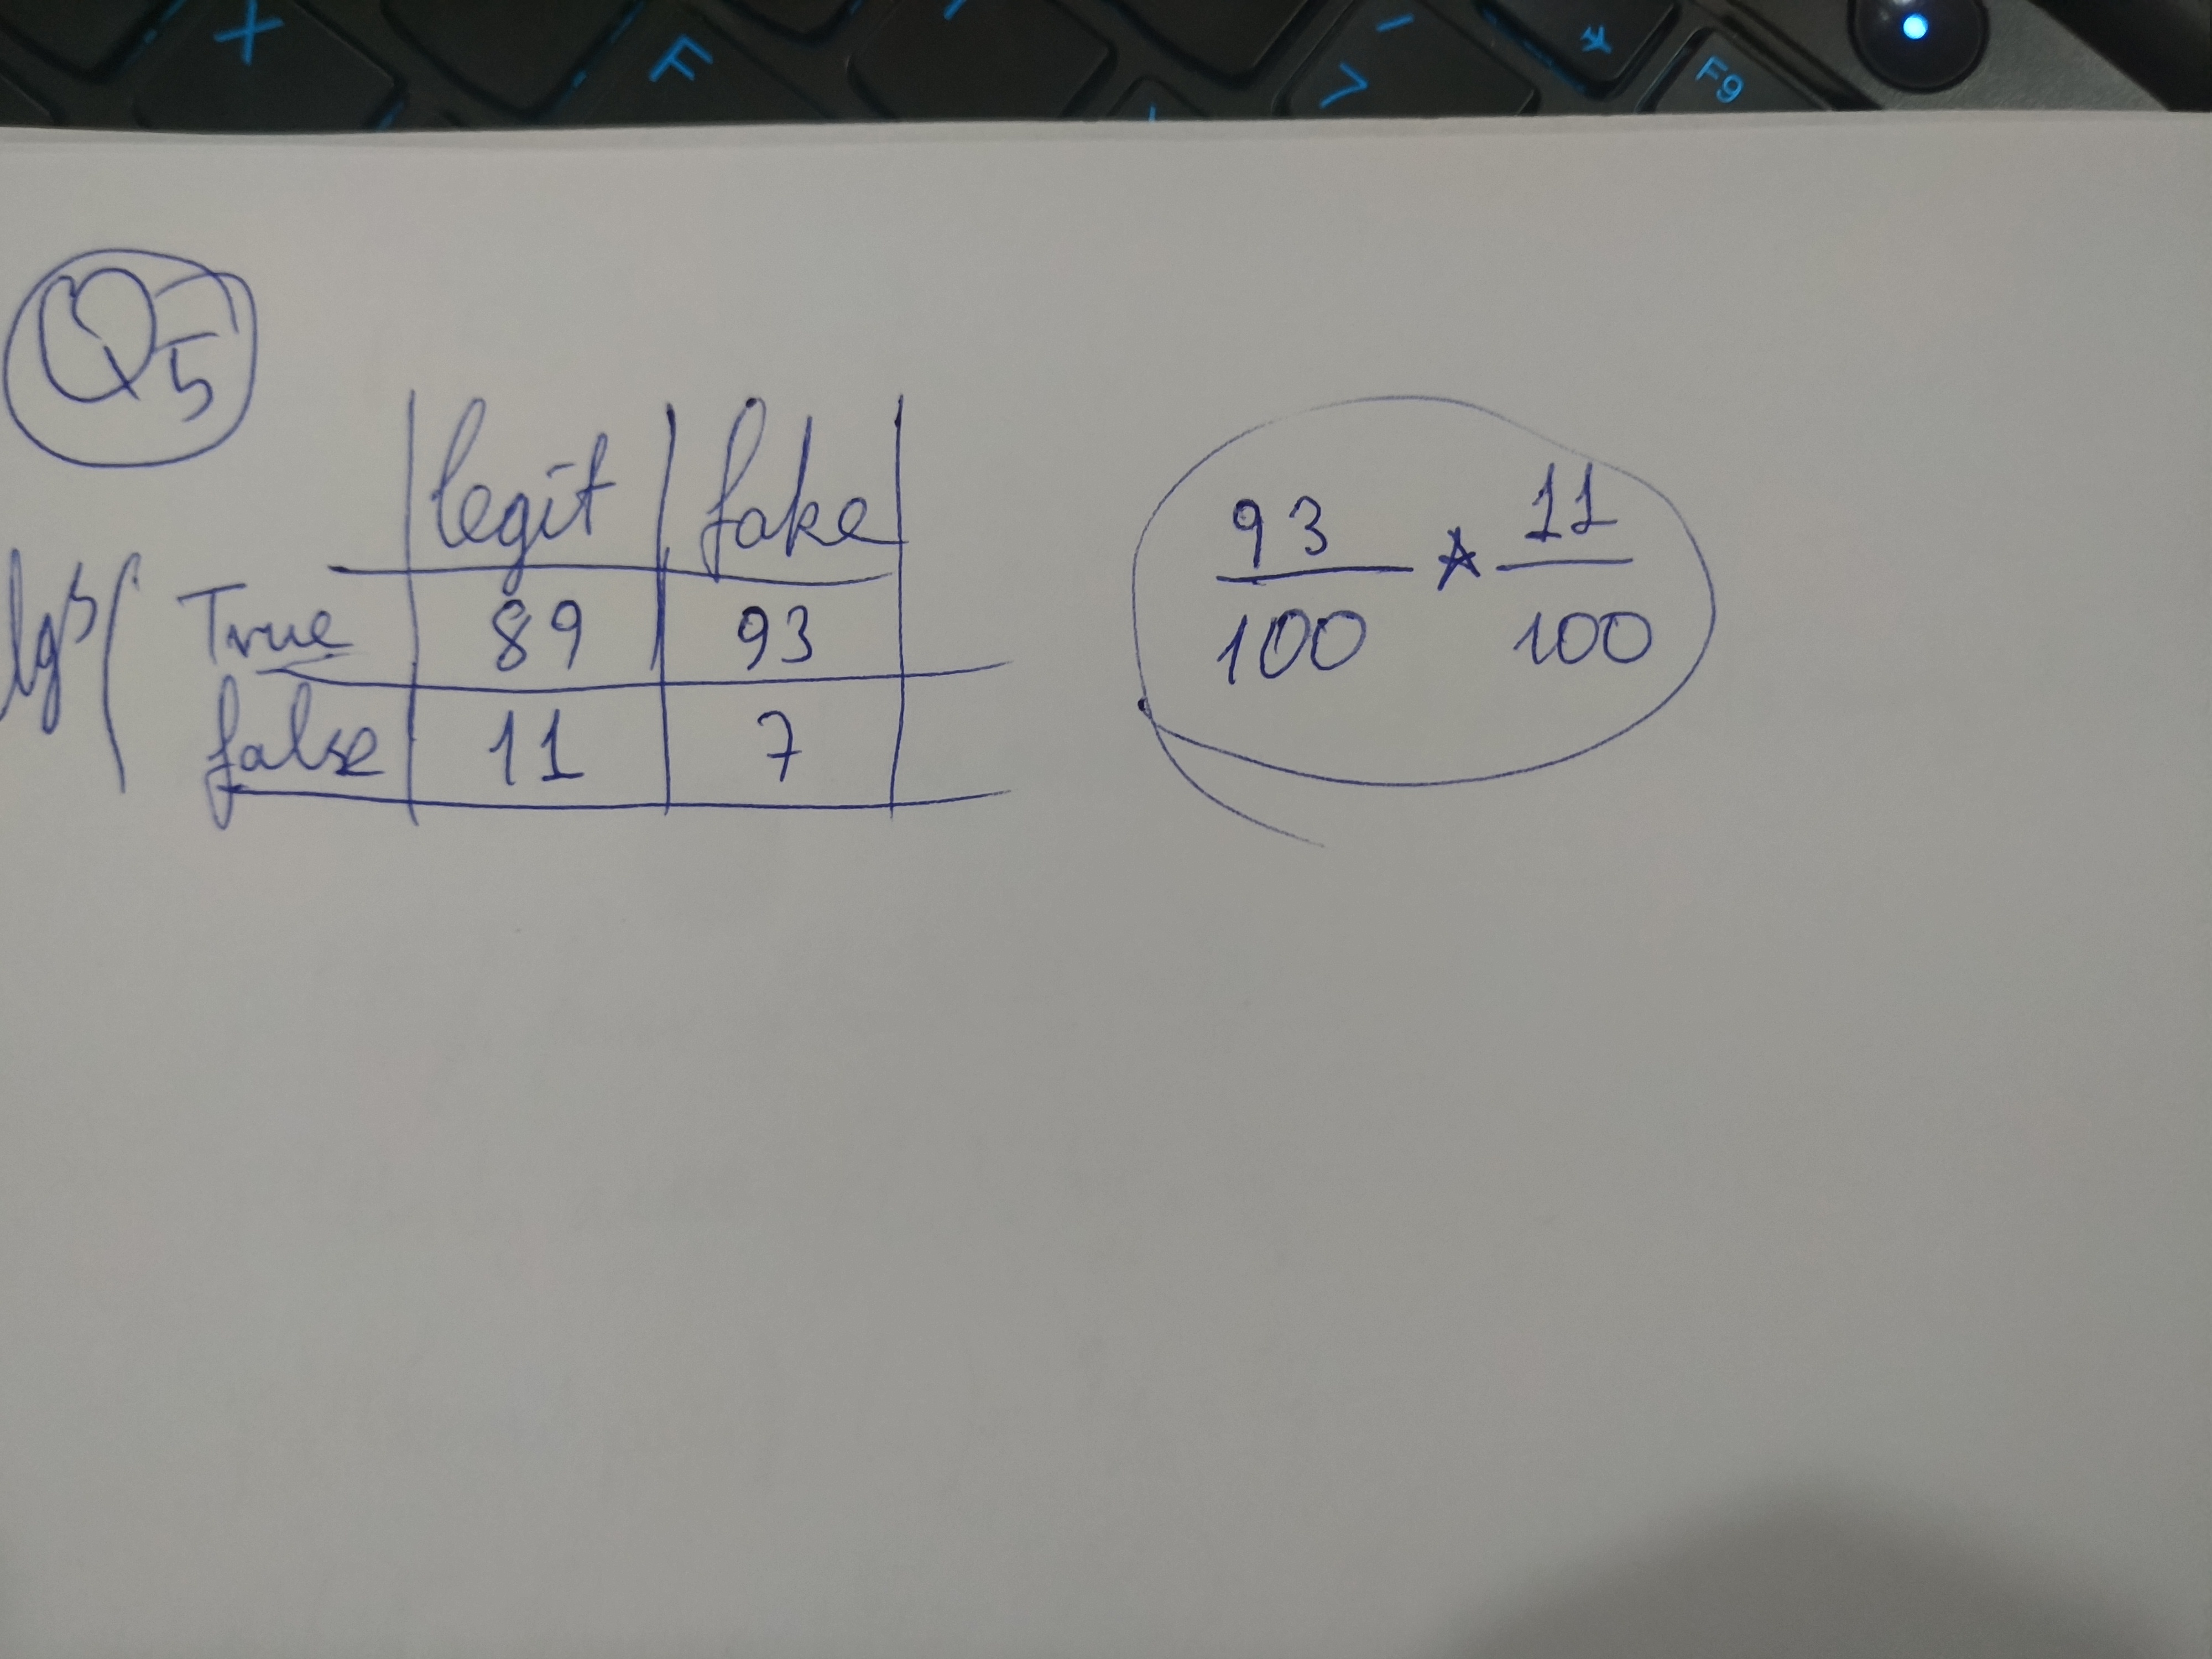 X F 7 F9
Q5
legit fake
True 89 93
false 11 7
93/100 * 11/100